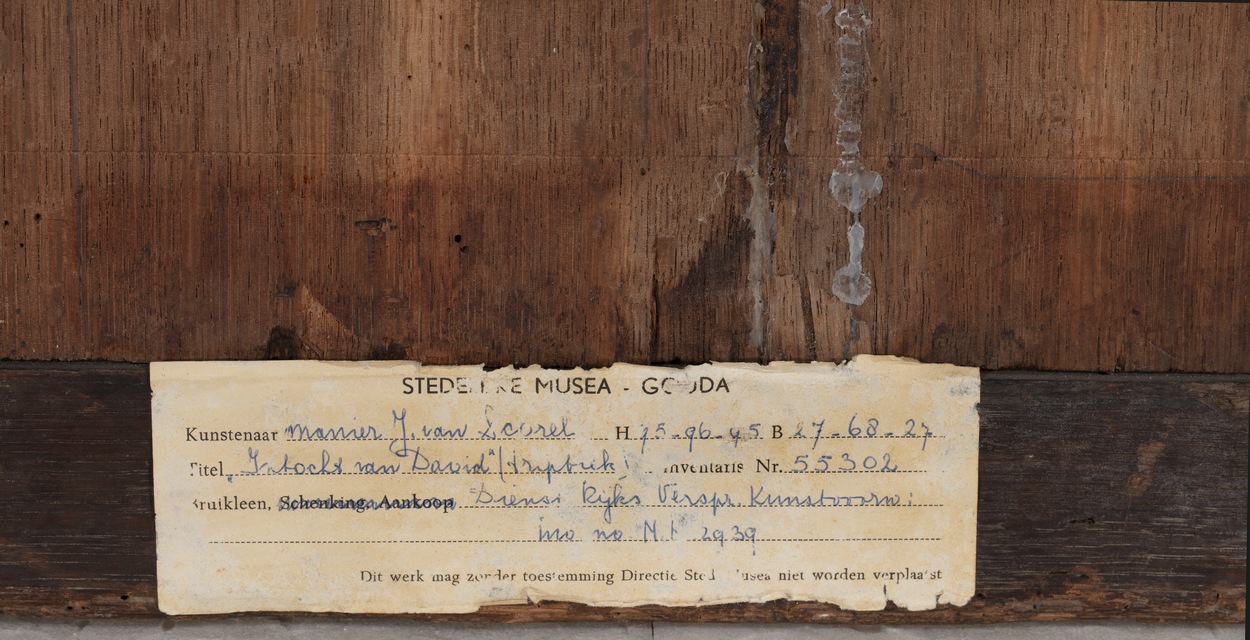 STEDELIJKE MUSEA - GOUDA
Kunstenaar manier J. van Scorel H 95-96-95 B 27-68-27
Titel "Intocht van David" (triptiek) Inventaris Nr. 55302
Bruikleen, Schenking, Aankoop Dienst Rijks Verspr. Kunstvoorw:
inv no N K 2939
Dit werk mag zonder toestemming Directie Sted. Musea niet worden verplaatst